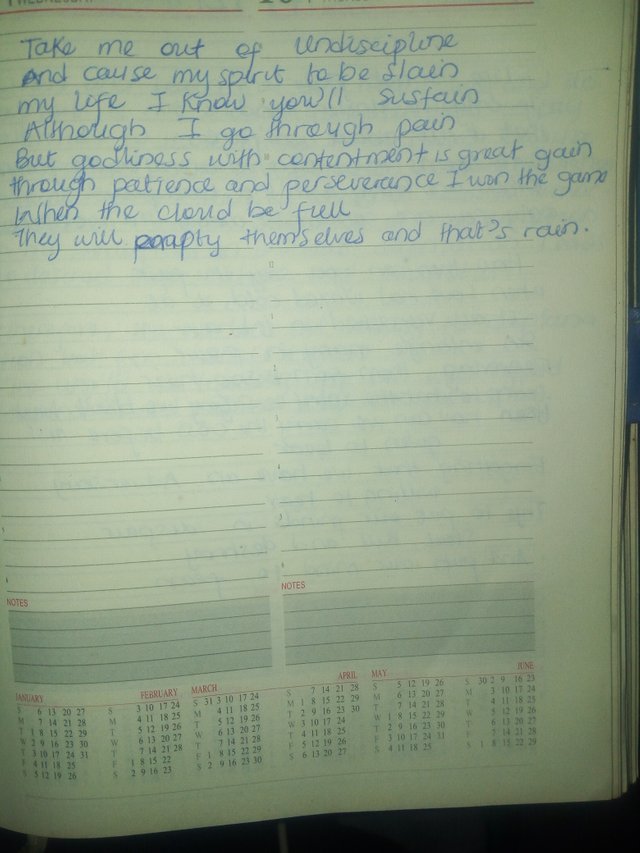 Take me out of Undiscipline
And cause my spirit to be slain
my life I know you'll sustain
Although I go through pain
But godliness with contentment is great gain
through patience and perseverance I won the game
When the cloud be full
They will themselves and that's rain.
12
1
2
3
NOTES
NOTES
JANUARY FEBRUARY MARCH APRIL MAY JUNE
S 6 13 20 27 S 3 10 17 24 S 31 3 10 17 24 S 7 14 21 28 S 5 12 19 26 S 30 2 9 16 23
M 7 14 21 28 M 4 11 18 25 M 4 11 18 25 M 1 8 15 22 29 M 6 13 20 27 M 3 10 17 24
T 1 8 15 22 29 T 5 12 19 26 T 5 12 19 26 T 2 9 16 23 30 T 7 14 21 28 T 4 11 18 25
W 2 9 16 23 30 W 6 13 20 27 W 6 13 20 27 W 3 10 17 24 W 1 8 15 22 29 W 5 12 19 26
T 3 10 17 24 31 T 7 14 21 28 T 7 14 21 28 T 4 11 18 25 T 2 9 16 23 30 T 6 13 20 27
F 4 11 18 25 F 1 8 15 22 F 1 8 15 22 29 F 5 12 19 26 F 3 10 17 24 31 F 7 14 21 28
S 5 12 19 26 S 2 9 16 23 S 2 9 16 23 30 S 6 13 20 27 S 4 11 18 25 S 1 8 15 22 29